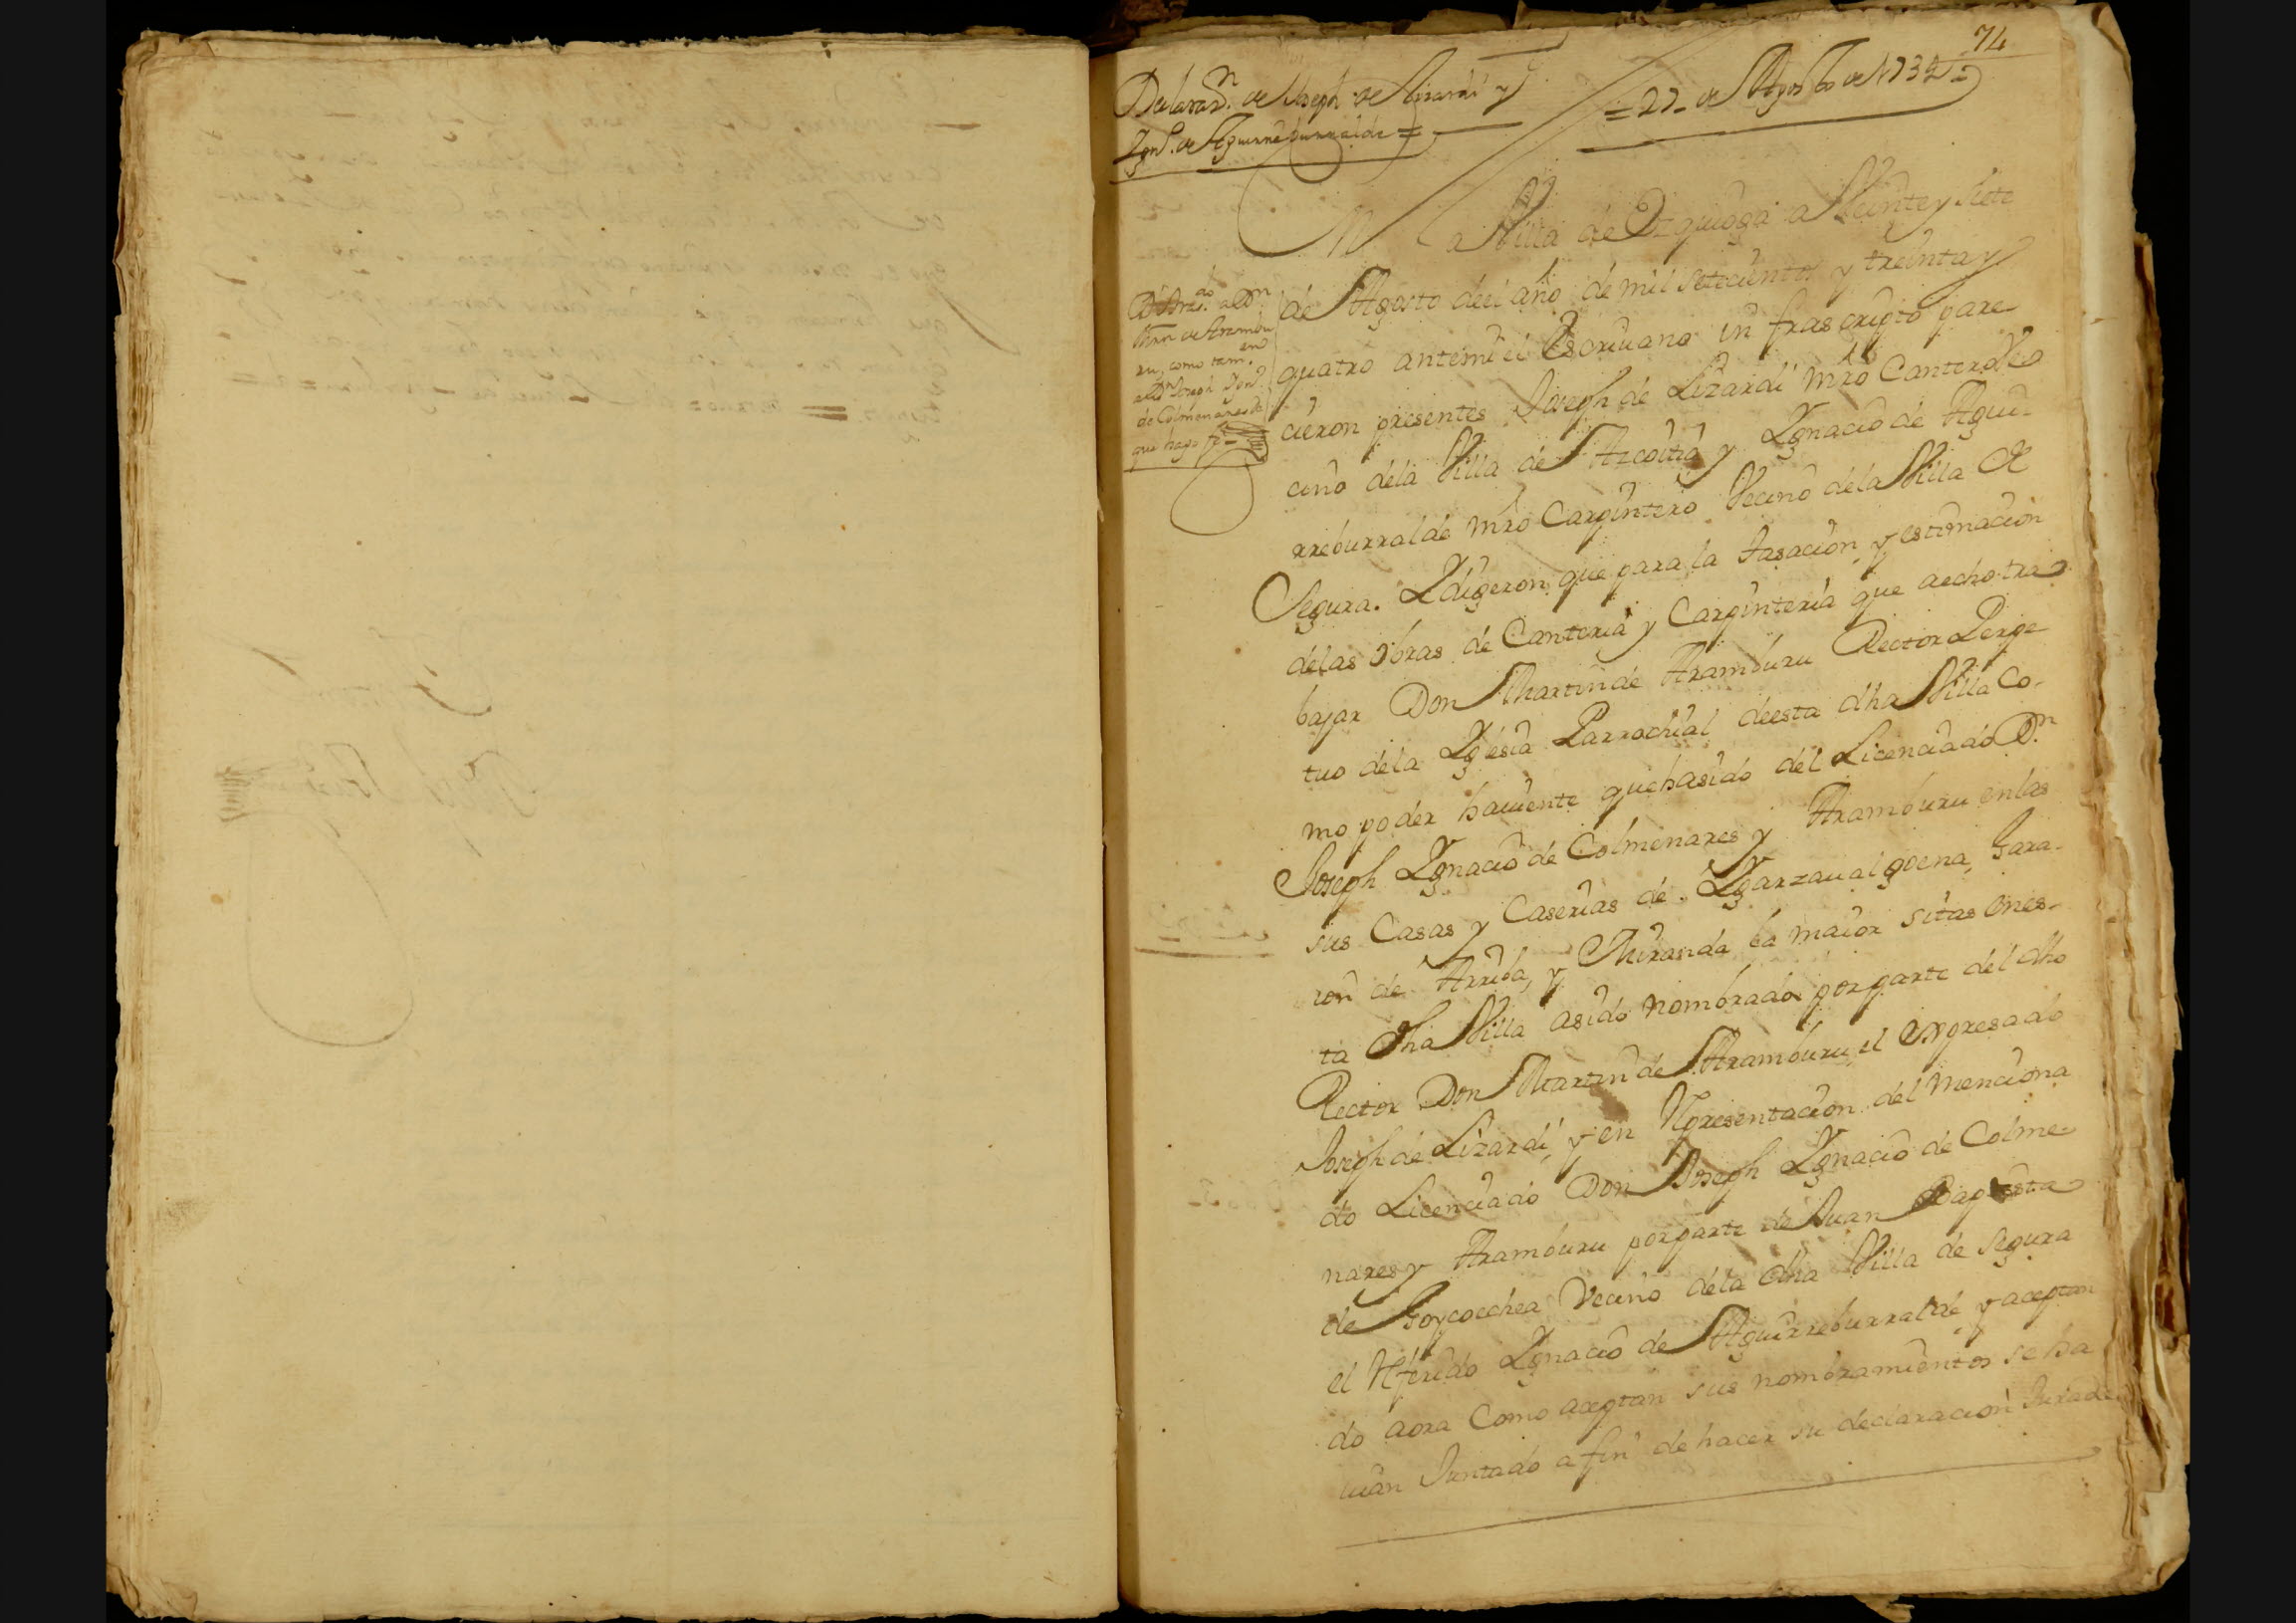 74
Declaraz.n de Joseph de Lizardi y
Ign.o de Aguirreburralde =
= 27 de Agosto de 1734 =
En la Villa de Ezquioga a Veinte y Siete
de Agosto del año de mil setecientos y treinta y
quatro antemi el Escriuano infrascripto pare
cieron presentes Joseph de Lizardi Mro Cantero Ve
cino dela Villa de Azcoitia y Ignacio de Agui-
rreburralde Mro Carpintero Vecino dela Villa de
Segura. Y digeron que para la Tasacion y estimacion
delas obras de Canteria y Carpinteria que aecho tra
bajar Don Martin de Aramburu Rector Perpe
tuo dela Yglesia Parrochial deesta dha Villa Co-
mo poder hauiente quehasido del Licenciado D.n
Joseph Ygnacio de Colmenares y Aramburu enlas
sus Casas y Caserias de Ygarzaualgoena, Gara-
ion de Arriba, y Miranda la maior sitas enes-
ta dha Villa asido nombrado por parte del dho
Rector Don Martin de Aramburu el expresado
Joseph de Lizardi, y en Rpresentacion del menciona
do Licenciado Don Joseph Ygnacio de Colme-
nares y Aramburu por parte de Juan Baptista
de Goycoechea Vecino dela dha Villa de Segura
el Rferido Ygnacio de Aguirreburralde y aceptan
do aora Como aceptan sus nombramientos se ha
uian Juntado a fin de hacer su declaracion Jurada
do n
Mrn de Arambu
ru, como tam.en
a Dn Joseph Ign.o
de Colmenares de
que hago fe =